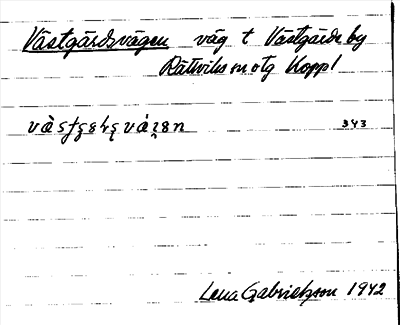 Västgårdsvägen väg t Västgärde by
Rättviks sn otg Koppl
343
Lena Gabrielsson 1942